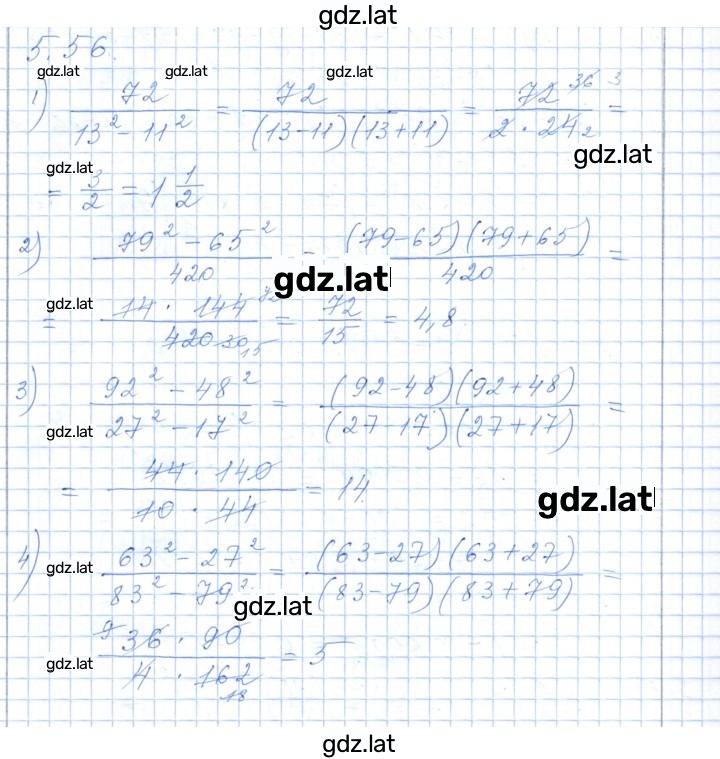 gdz.lat
5.56.
gdz.lat gdz.lat gdz.lat
1) 72 / (13² - 11²) = 72 / ((13-11)(13+11)) = 72 36 3 / (2 · 24 2) =
gdz.lat
gdz.lat
= 3/2 = 1 1/2
2) (79² - 65²) / 420 = ((79-65)(79+65)) / 420 =
gdz.lat
gdz.lat
= (14 · 144 72) / (420 30 15) = 72/15 = 4,8
3) (92² - 48²) / (27² - 17²) = ((92-48)(92+48)) / ((27-17)(27+17)) =
gdz.lat
= (44 · 140) / (10 · 44) = 14.
gdz.lat
4) (63² - 27²) / (83² - 79²) = ((63-27)(63+27)) / ((83-79)(83+79)) =
gdz.lat
gdz.lat
(9 36 · 90) / (4 · 162 18) = 5
gdz.lat
gdz.lat